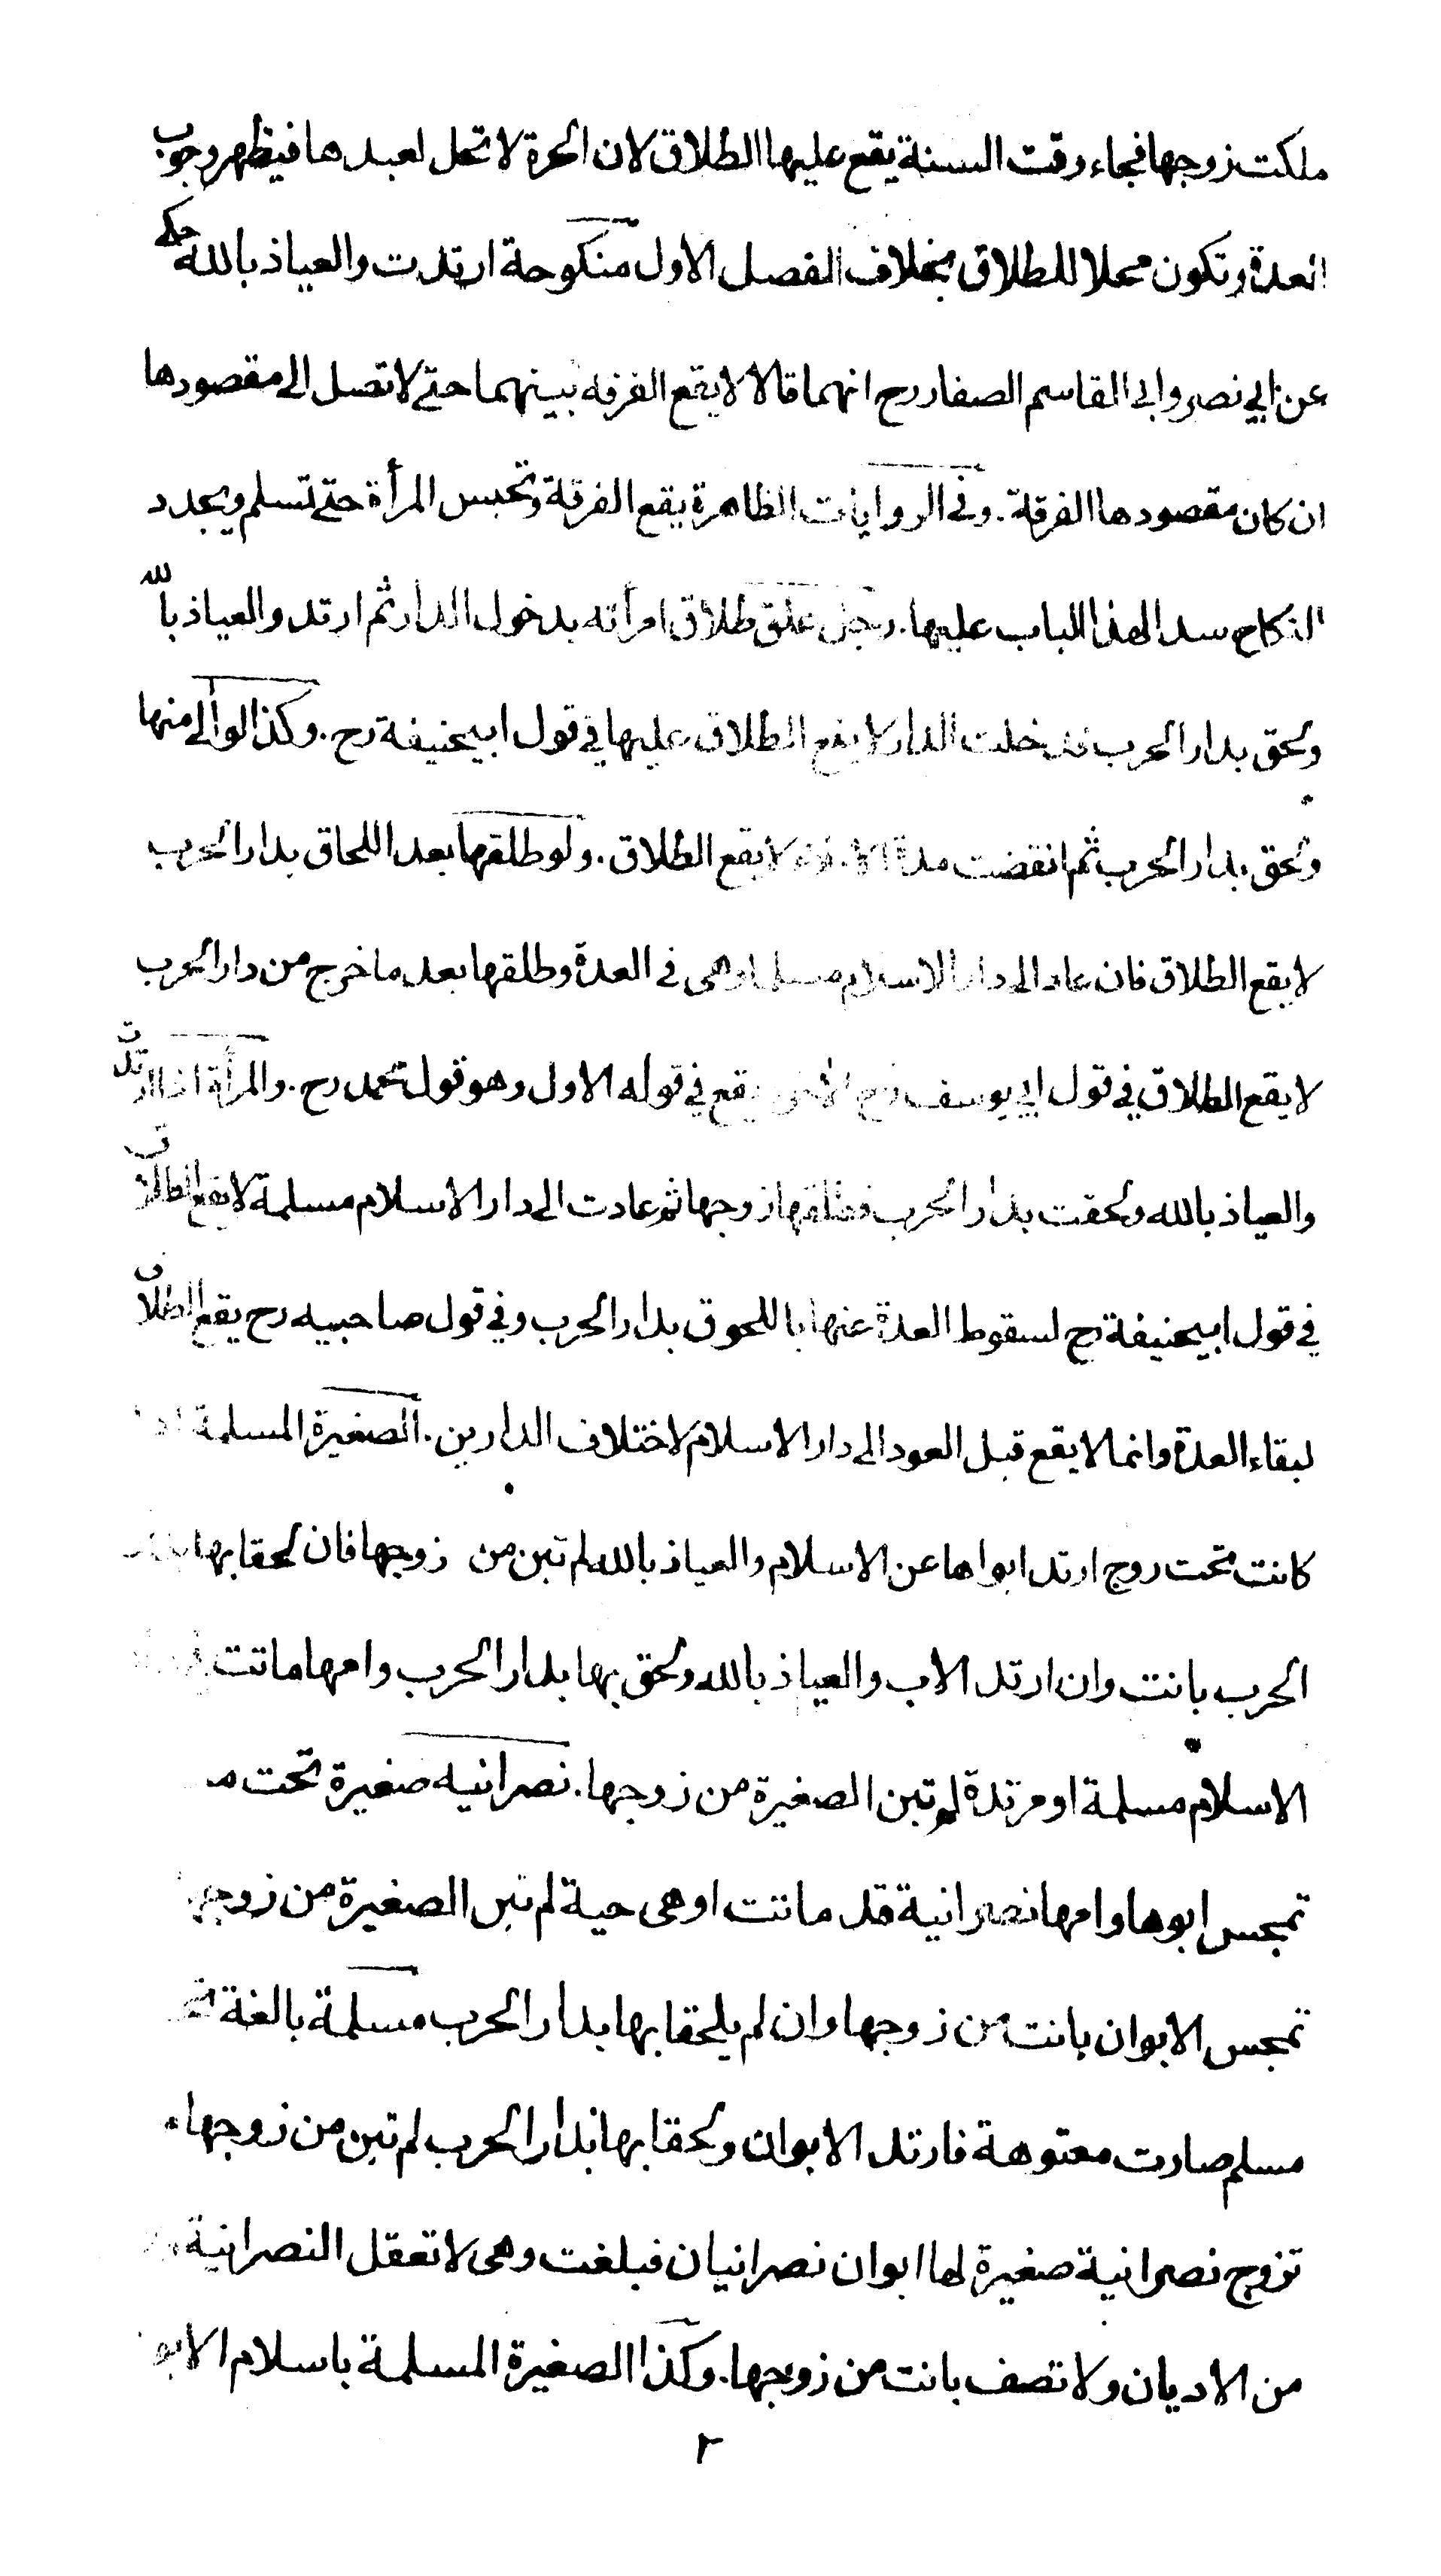 ملكت زوجها فجاء وقت السنة يقع عليها الطلاق لان الحرة لا تحل لعبدها فيظهر وجوب
العدة وتكون محلا للطلاق بخلاف الفصل الاول منكوحة ارتدت والعياذ بالله حكى
عن ابي نصر وابى القاسم الصفار رح انهما قالا لا يقع الفرقه بينهما حتى لا تصل الى مقصودها
ان كان مقصودها الفرقة . وفى الروايات الظاهرة يقع الفرقة وتحبس المرأة حتى تسلم ويجدد
النكاح سدا لهذا الباب عليها . رجل علق طلاق امرأته بدخول الدار ثم ارتد والعياذ بالله
ولحق بدار الحرب فدخلت الدار لا يقع الطلاق عليها في قول ابيحنيفة رح . وكذا لو آلى منها
ولحق بدار الحرب ثم انقضت مدة لا يقع الطلاق . ولو طلقها بعد اللحاق بدار الحرب
لا يقع الطلاق فان عاد الى دار الاسلام مسلما وهى فى العدة وطلقها بعد ما خرج من دار الحرب
لا يقع الطلاق في قول ابي يوسف رح يقع في قوله الاول وهو قول محمد رح . والمرأة اذا ارتدت
والعياذ بالله ولحقت بدار الحرب فطلقها زوجها ثم عادت الى دار الاسلام مسلمة لا يقع الطلاق
في قول ابيحنيفة رح لسقوط العدة عنها باللحوق بدار الحرب وفي قول صاحبيه رح يقع الطلاق
لبقاء العدة وانما لا يقع قبل العود الى دار الاسلام لاختلاف الدارين . الصغيرة المسلمة
كانت تحت زوج ارتد ابواها عن الاسلام والعياذ بالله لم تبن من زوجها فان لحقا بها
الحرب بانت وان ارتد الاب والعياذ بالله ولحق بها بدار الحرب وامها ماتت
الاسلام مسلمة او مرتدة لم تبن الصغيرة من زوجها . نصرانيه صغيرة تحت
تمجس ابوها وامها نصرانية قد ماتت او هى حية لم تبن الصغيرة من زوجها
تمجس الابوان بانت من زوجها وان لم يلحقا بها بدار الحرب مسلمة بالغة
مسلم صارت معتوهة فارتد الابوان ولحقا بها بدار الحرب لم تبن من زوجها
تزوج نصرانية صغيرة لها ابوان نصرانيان فبلغت وهى لا تعقل النصرانية
من الاديان ولا تصف بانت من زوجها . وكذا الصغيرة المسلمة باسلام
٢